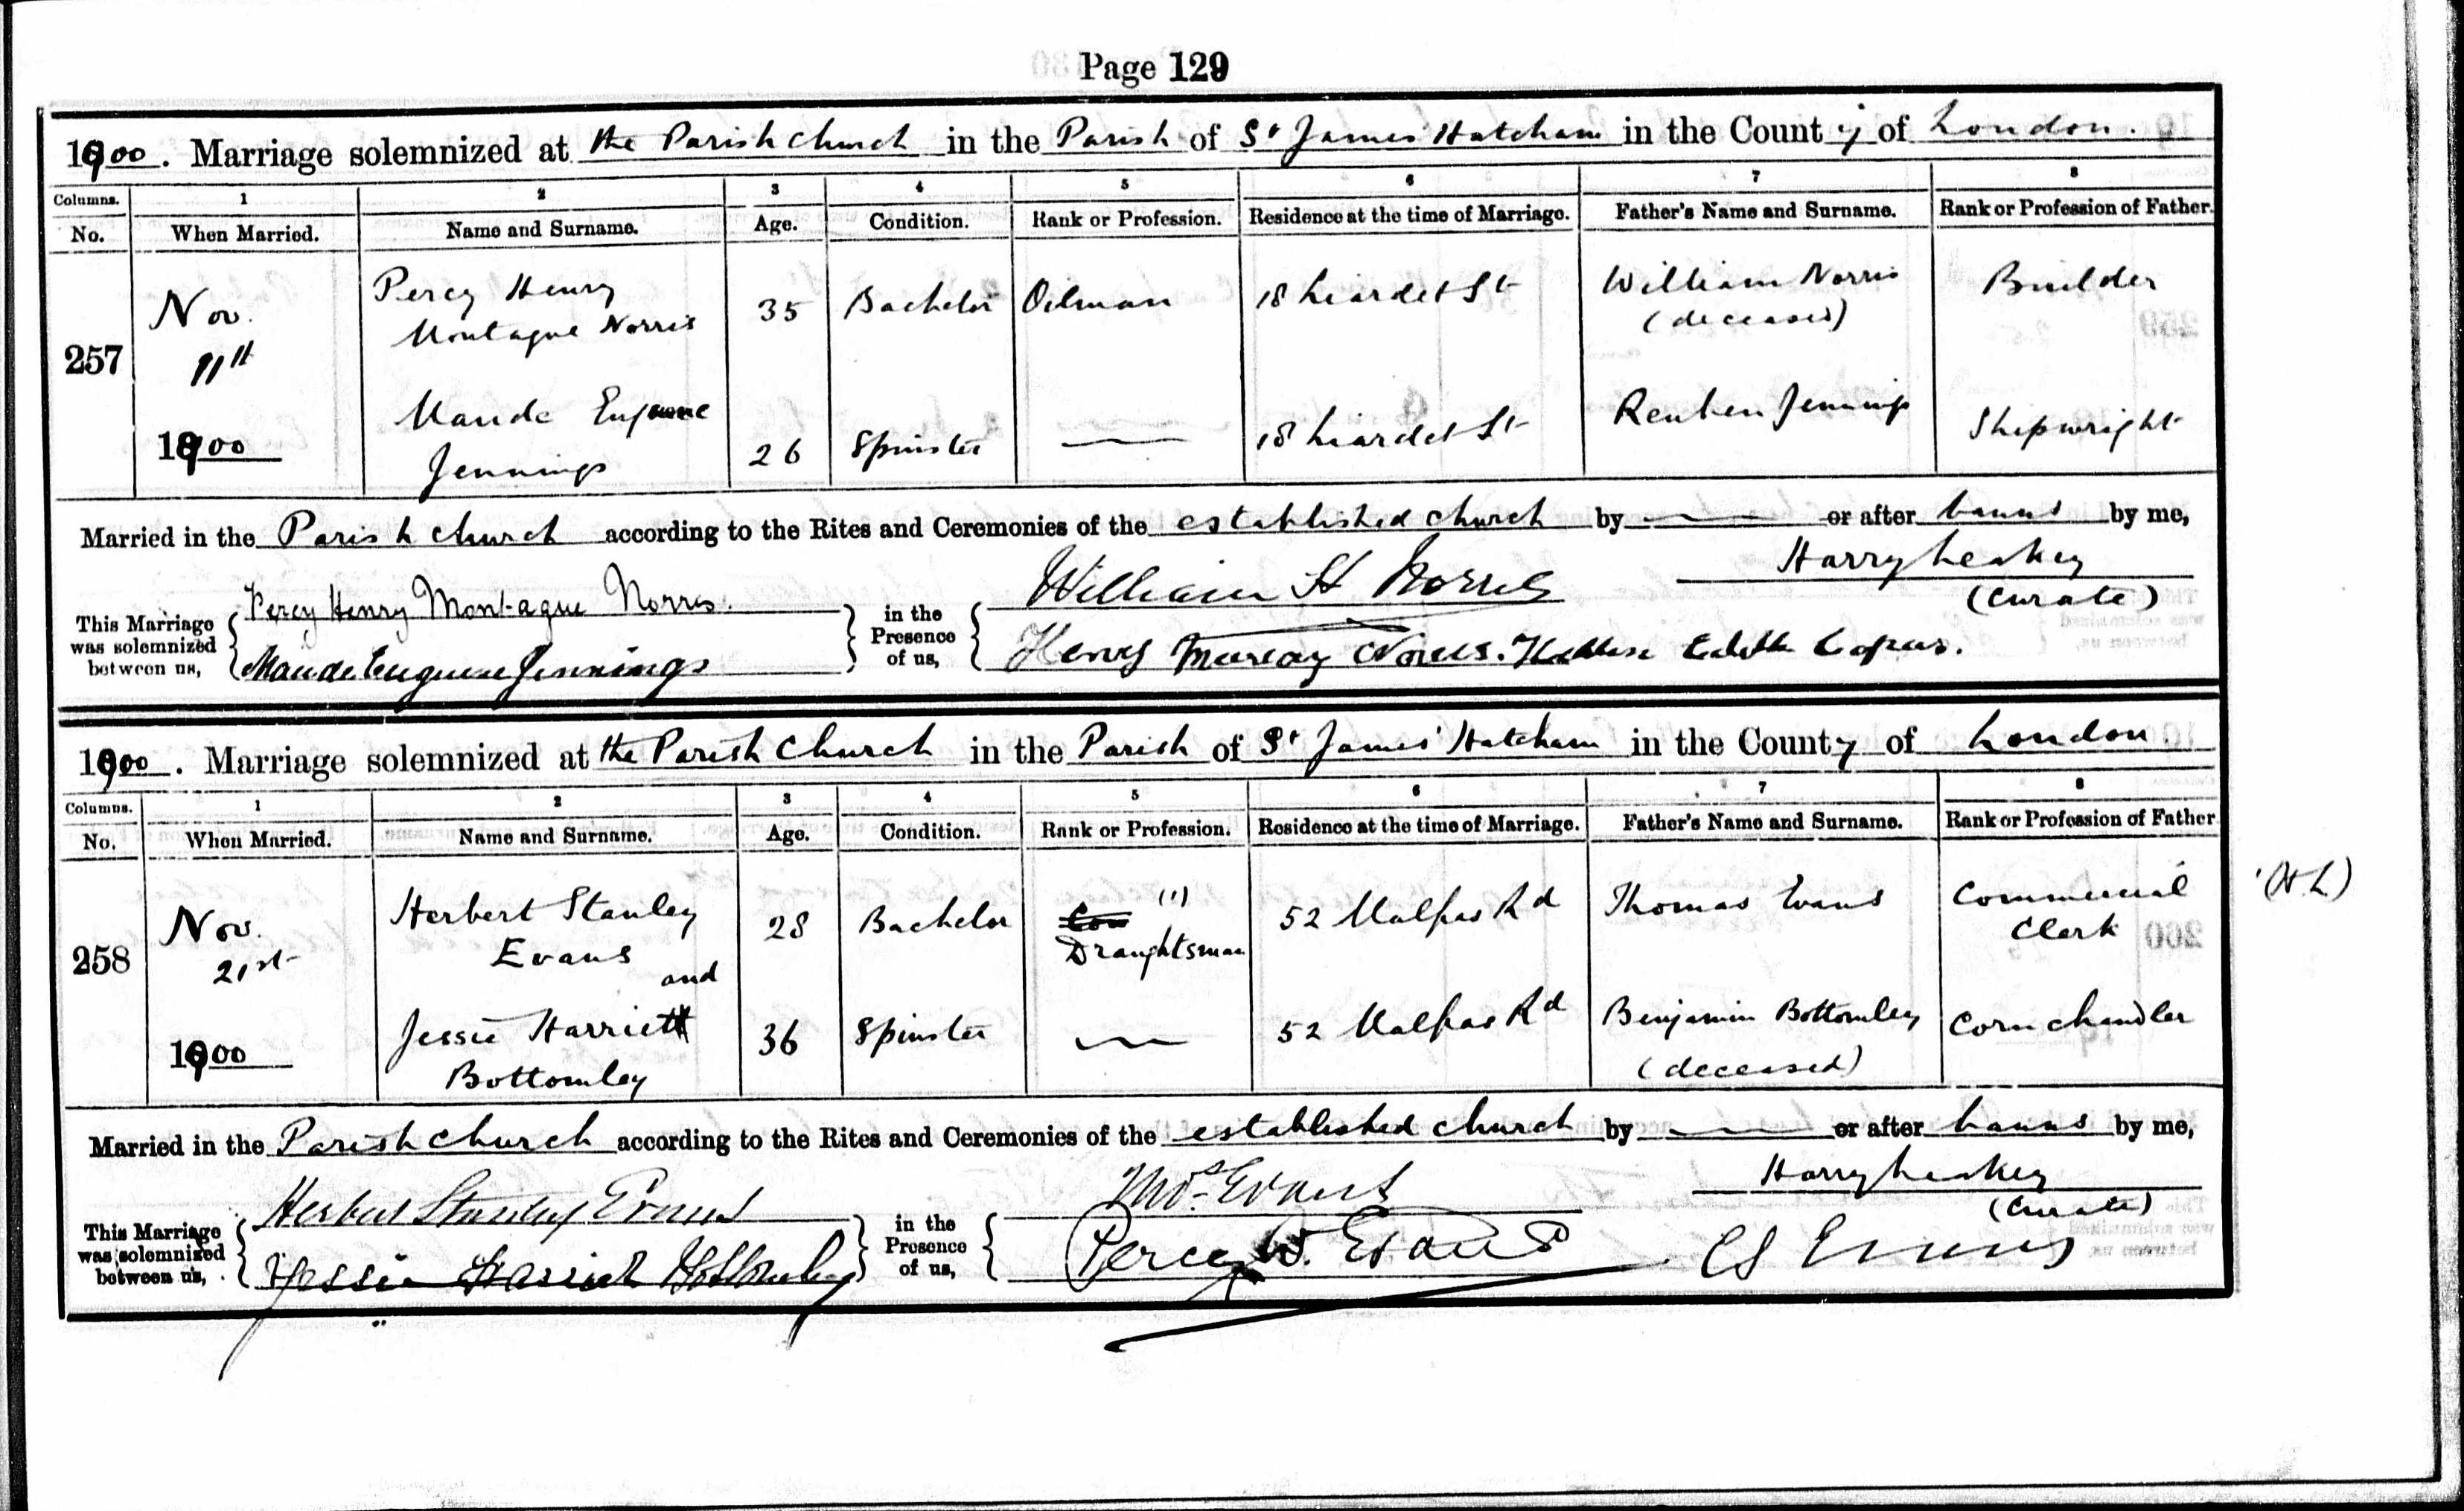 Page 129
1900. Marriage solemnized at the Parish Church in the Parish of St James' Hatcham in the County of London.
Columns. 1 2 3 4 5 6 7 8
No. When Married. Name and Surname. Age. Condition. Rank or Profession. Residence at the time of Marriage. Father's Name and Surname. Rank or Profession of Father.
257 Nov. 11th 1900 Percy Henry Montague Norris 35 Bachelor Oilman 18 Liardet St William Norris (deceased) Builder
Maude Eugenne Jennings 26 Spinster 18 Liardet St Reuben Jennings Shipwright
Married in the Parish Church according to the Rites and Ceremonies of the established church by or after banns by me,
Harry Leakey
(Curate)
This Marriage was solemnized between us, Percy Henry Montague Norris. in the Presence of us, William H Norris
Maude Jennings Henry Murray Norris. Edith
1900. Marriage solemnized at the Parish Church in the Parish of St James' Hatcham in the County of London.
Columns. 1 2 3 4 5 6 7 8
No. When Married. Name and Surname. Age. Condition. Rank or Profession. Residence at the time of Marriage. Father's Name and Surname. Rank or Profession of Father
258 Nov. 21st 1900 Herbert Stanley Evans and 28 Bachelor Con (1) Draughtsman 52 Malpas Rd Thomas Evans Commercial Clerk (H.L)
Jessie Harriett Bottomley 36 Spinster 52 Malpas Rd Benjamin Bottomley (deceased) Corn chandler
Married in the Parish Church according to the Rites and Ceremonies of the established church by or after banns by me,
Harry Leakey
(Curate)
This Marriage was solemnized between us, Herbert Stanley Evans in the Presence of us, Thos Evans
Jessie Harriett Bottomley Percy W. Evans Evans